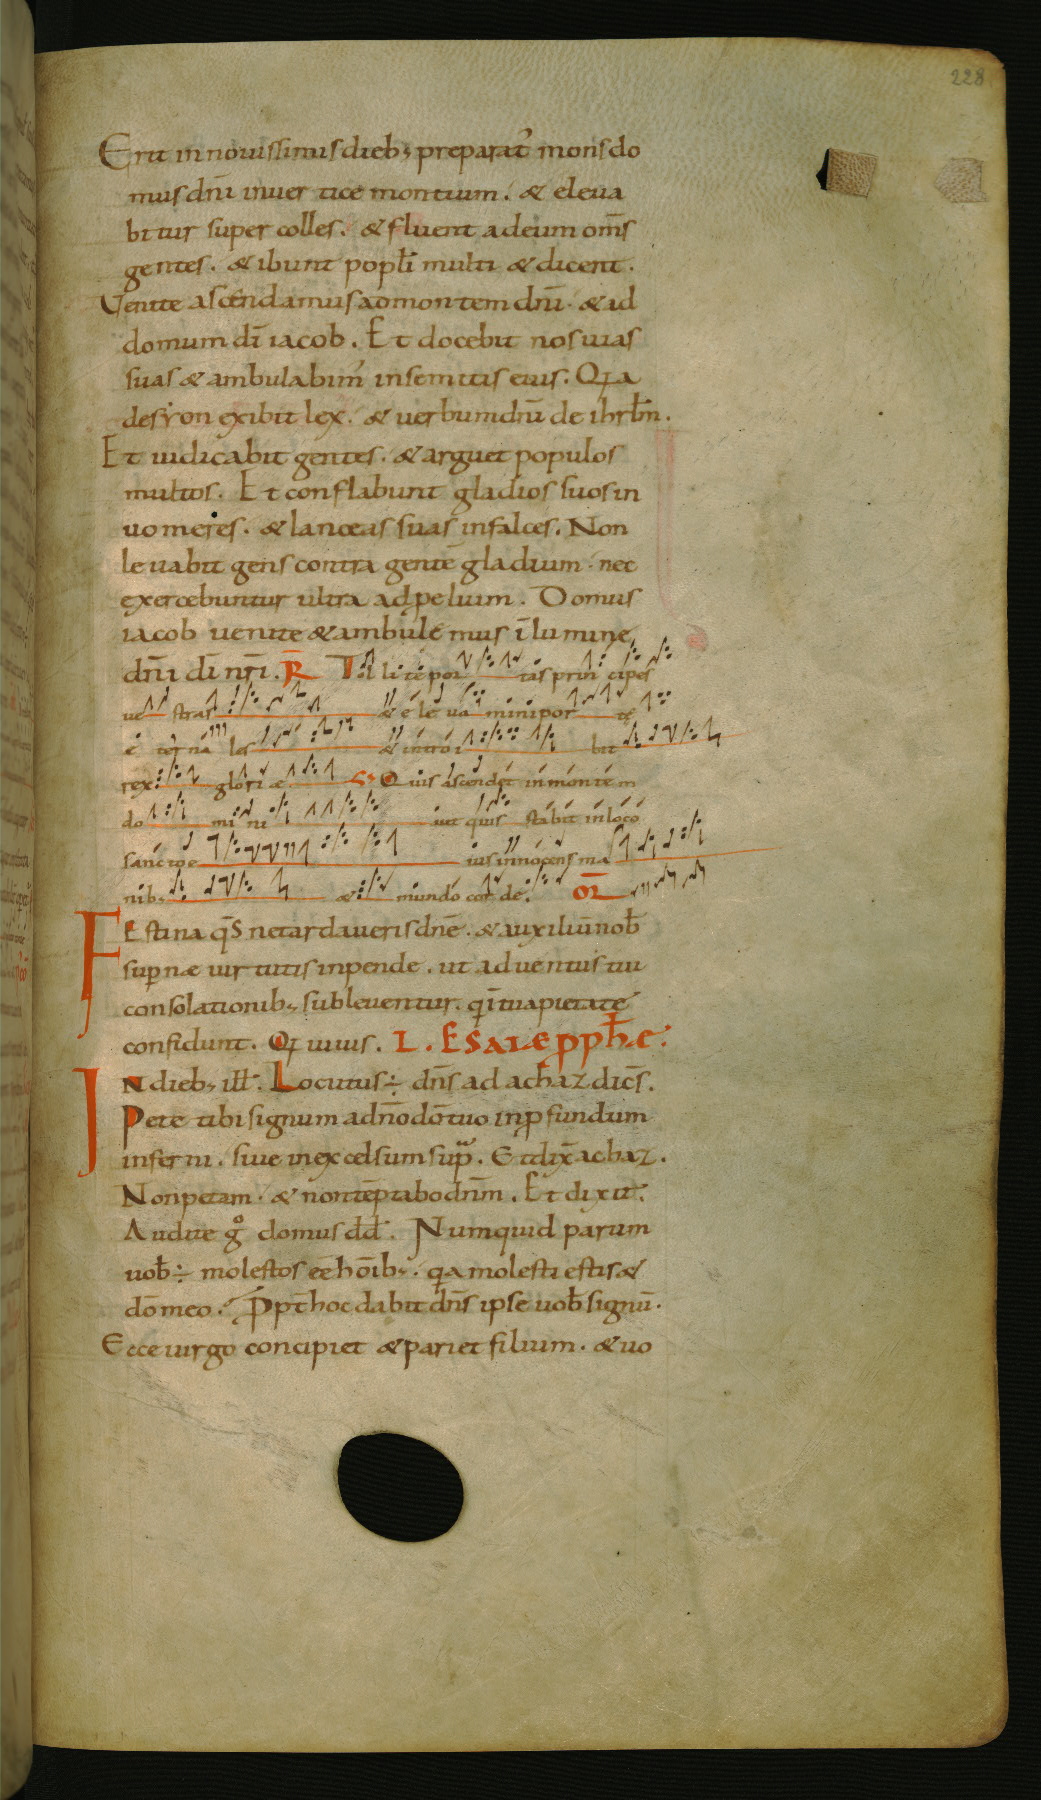 228
Erit in novissimis dieb; preparat᷒ mons do
mus dn̄i in ver tice montium. & eleva
bitur super colles. & fluent ad eum om̄s
gentes. & ibunt popl̄i multi & dicent.
Venite ascendamus ad montem dn̄i. & ad
domum dī iacob. Et docebit nos vias
suas & ambulabim᷒ in semitis eius. Quia
de syon exibit lex. & verbum dn̄i de ihrl̄m.
Et iudicabit gentes. & arguet populos
multos. Et conflabunt gladios suos in
uomeres. & lanceas suas in falces. Non
levabit gens contra gentē gladium. nec
exercebuntur ultra ad p̱elium. Domus
iacob venite & ambule mus ī lumine
dn̄i dī nr̄i. R̄ Tol li te por tas prin cipes
ve stras & e le va mini por te
e ter na les & intro i bit
rex glori ae. V. Quis ascendet in montem
do mi ni aut quis stabit in loco
sancto e ius innocens ma
nib; & mundo cor de. OR̄
FEstina q̄s ne tardaveris dn̄e. & auxiliū nob̄
sup̱nae virtutis inpende. ut adventus tui
consolationib; subleventur. qī in tua pietate
confidunt. Qui vivis. L. ESAIAE PPH̄AE.
IN dieb; ill̄. Locutus ÷ dn̄s ad achaz dic̄s.
Pete tibi signum a dn̄o dō tuo in p̱fundum
inferni. sive in excelsum sup̱ᵃ. Et dix̄ achaz.
Non petam. & non tēptabo dn̄m. Et dixit.
Audite g̊ domus dd̄. Numquid parum
vob̄ ÷ molestos eē hōib;. quia molesti estis &
dō meo. Ppt̄ hoc dabit dn̄s ipse vob̄ signū.
Ecce virgo concipiet & pariet filium. & vo